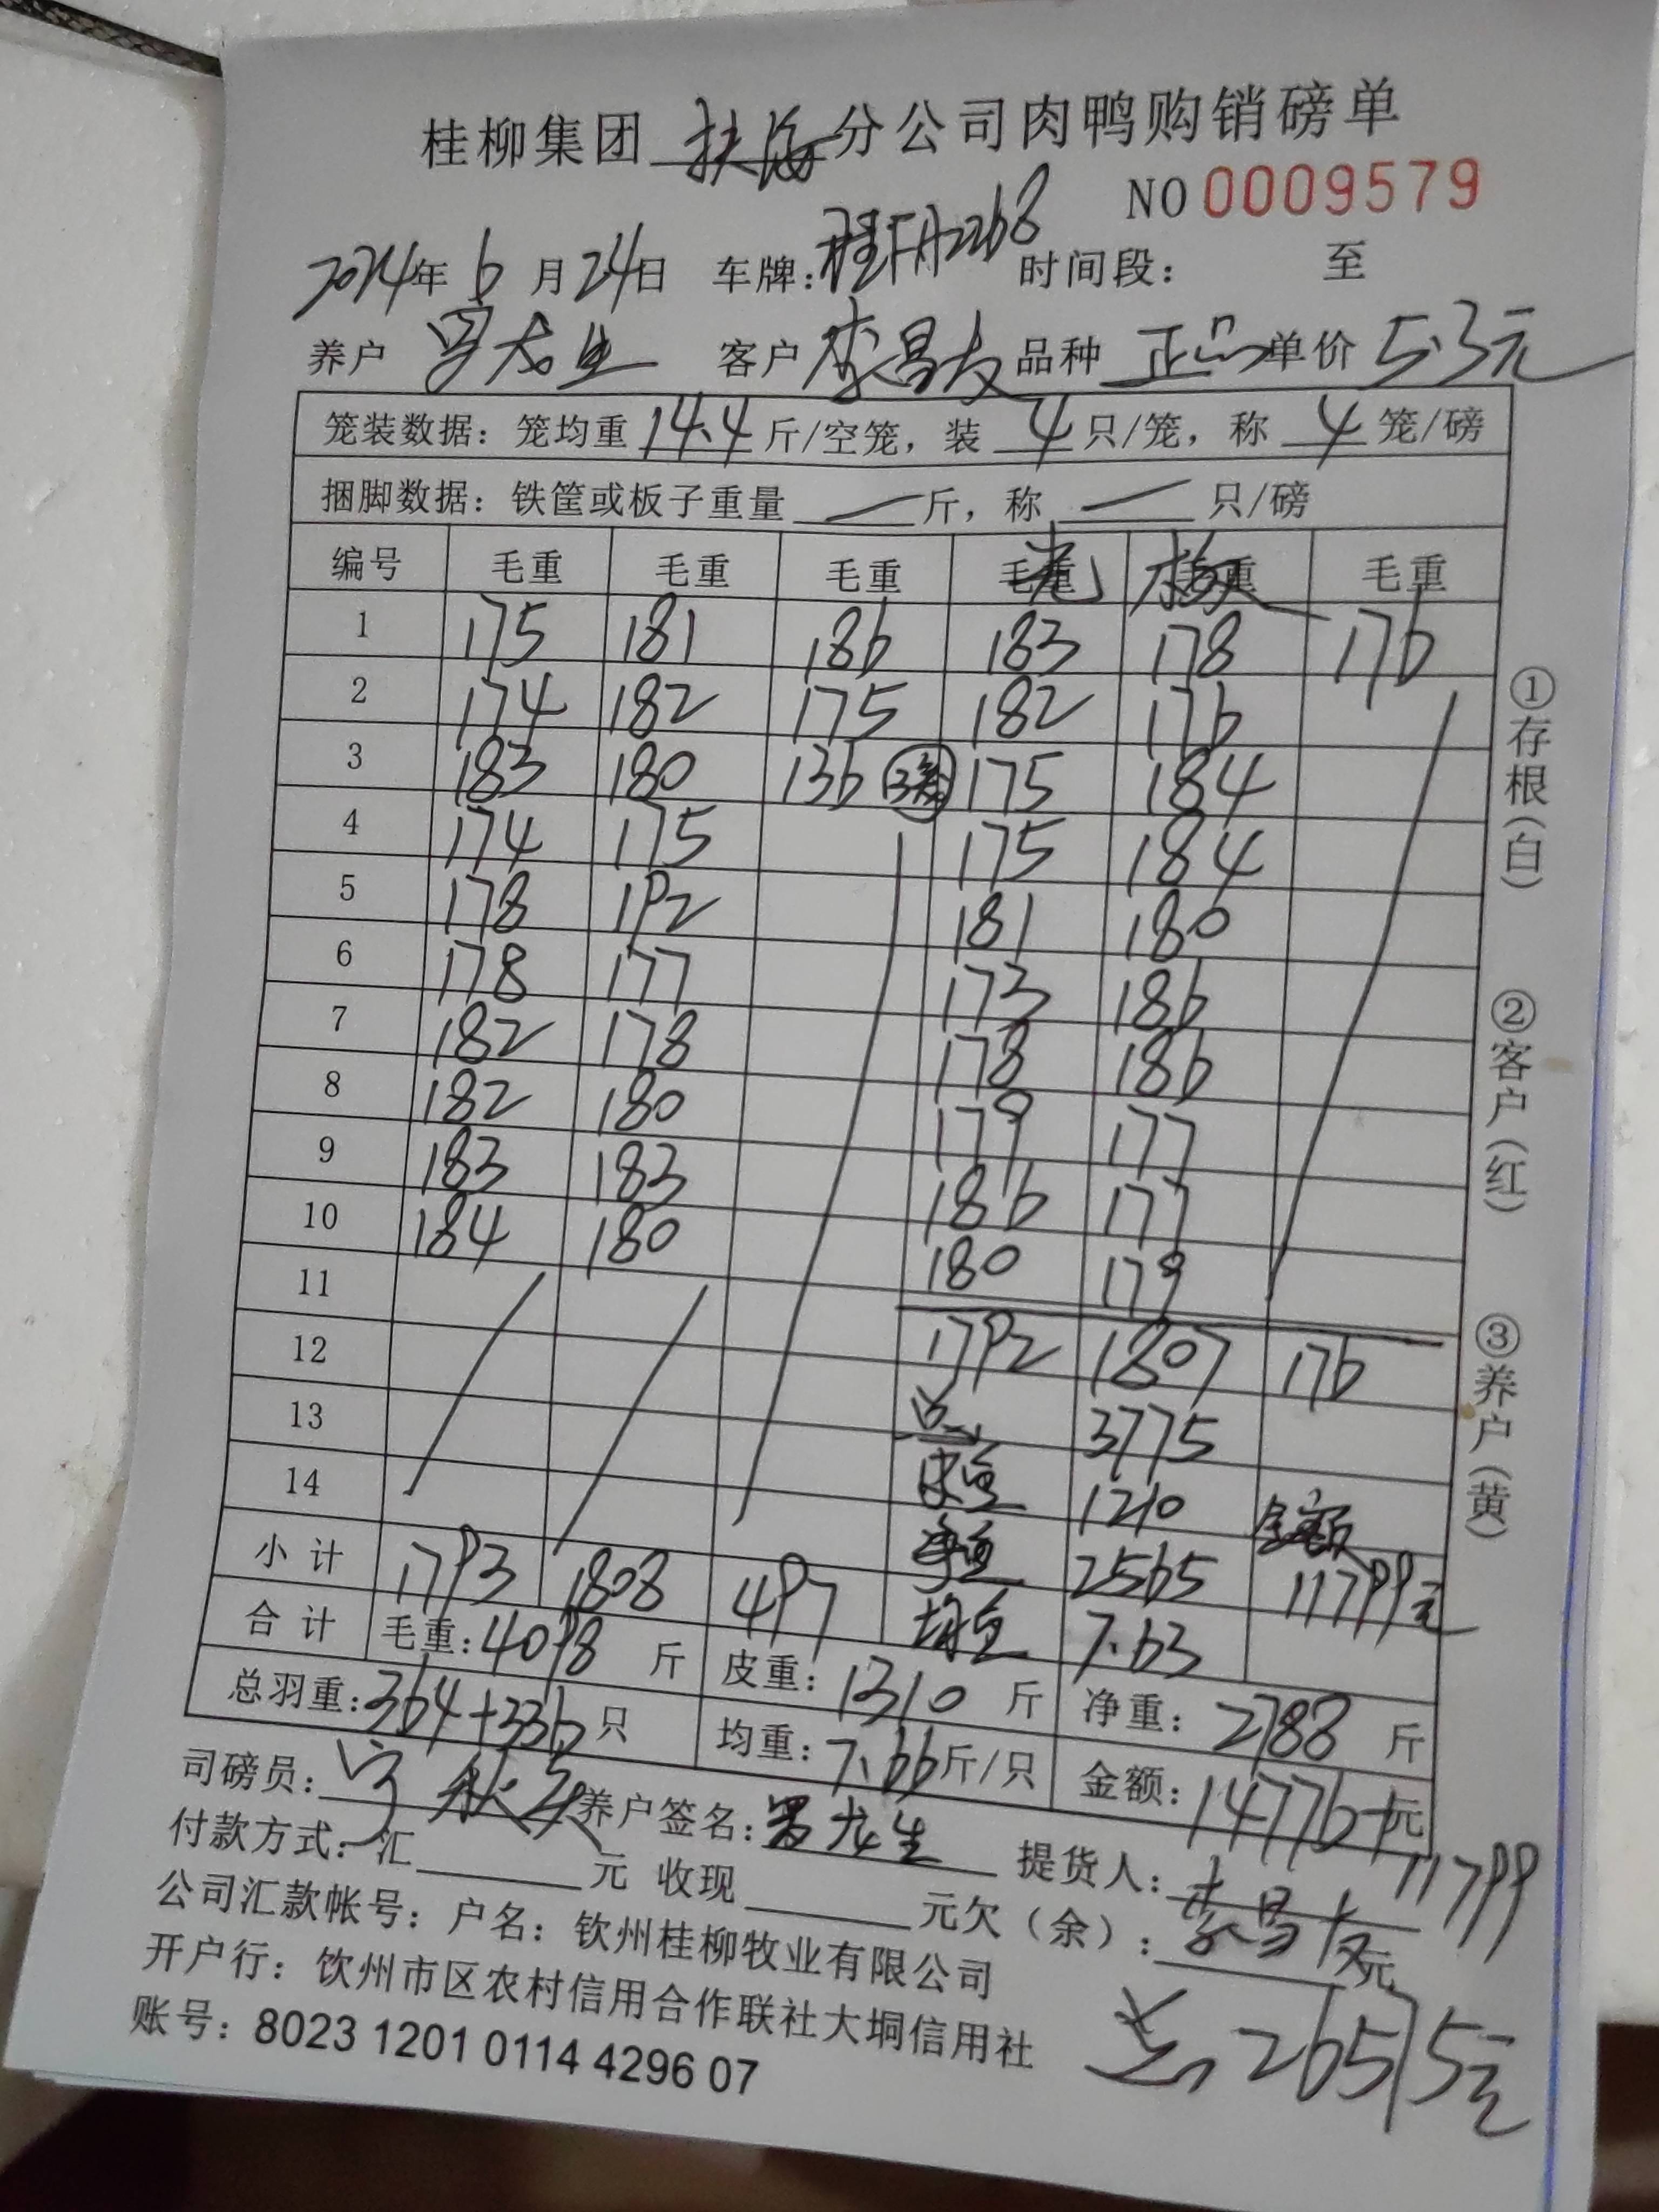 桂柳集团 扶海 分公司肉鸭购销磅单
NO 0009579
2024年 6 月 24日 车牌: 桂 2268 时间段: 至
养户 客户 李昌友 品种 正品 单价 5.3元
笼装数据: 笼均重 14.4 斤/空笼, 装 4 只/笼, 称 4 笼/磅
捆脚数据: 铁筐或板子重量 — 斤, 称 — 只/磅
编号 毛重 毛重 毛重 毛重 毛重 毛重
1 175 181 186 183 178 176
2 174 182 175 182 176
3 183 180 136 175 184
4 174 175 175 184
5 178 192 181 180
6 178 177 173 186
7 182 178 178 186
8 182 180 179 177
9 183 183 186 177
10 184 180 180 179
11
12 1792 1807 176
13 总 3775
14 皮重 1210 金额
小计 1793 1808 497 净重 2565 11799元
均重 7.63
合计 毛重: 4098 斤 皮重: 1310 斤 净重: 2788 斤
总羽重: 364+336 只 均重: 7.66 斤/只 金额: 14776+元
11799
司磅员: 养户签名: 罗龙生 提货人: 李昌友
付款方式: 汇 元 收现 元欠(余): 元
公司汇款帐号: 户名: 钦州桂柳牧业有限公司
开户行: 饮州市区农村信用合作联社大垌信用社
账号: 8023 1201 0114 4296 07
总 26575元
①存根(白)
②客户(红)
③养户(黄)